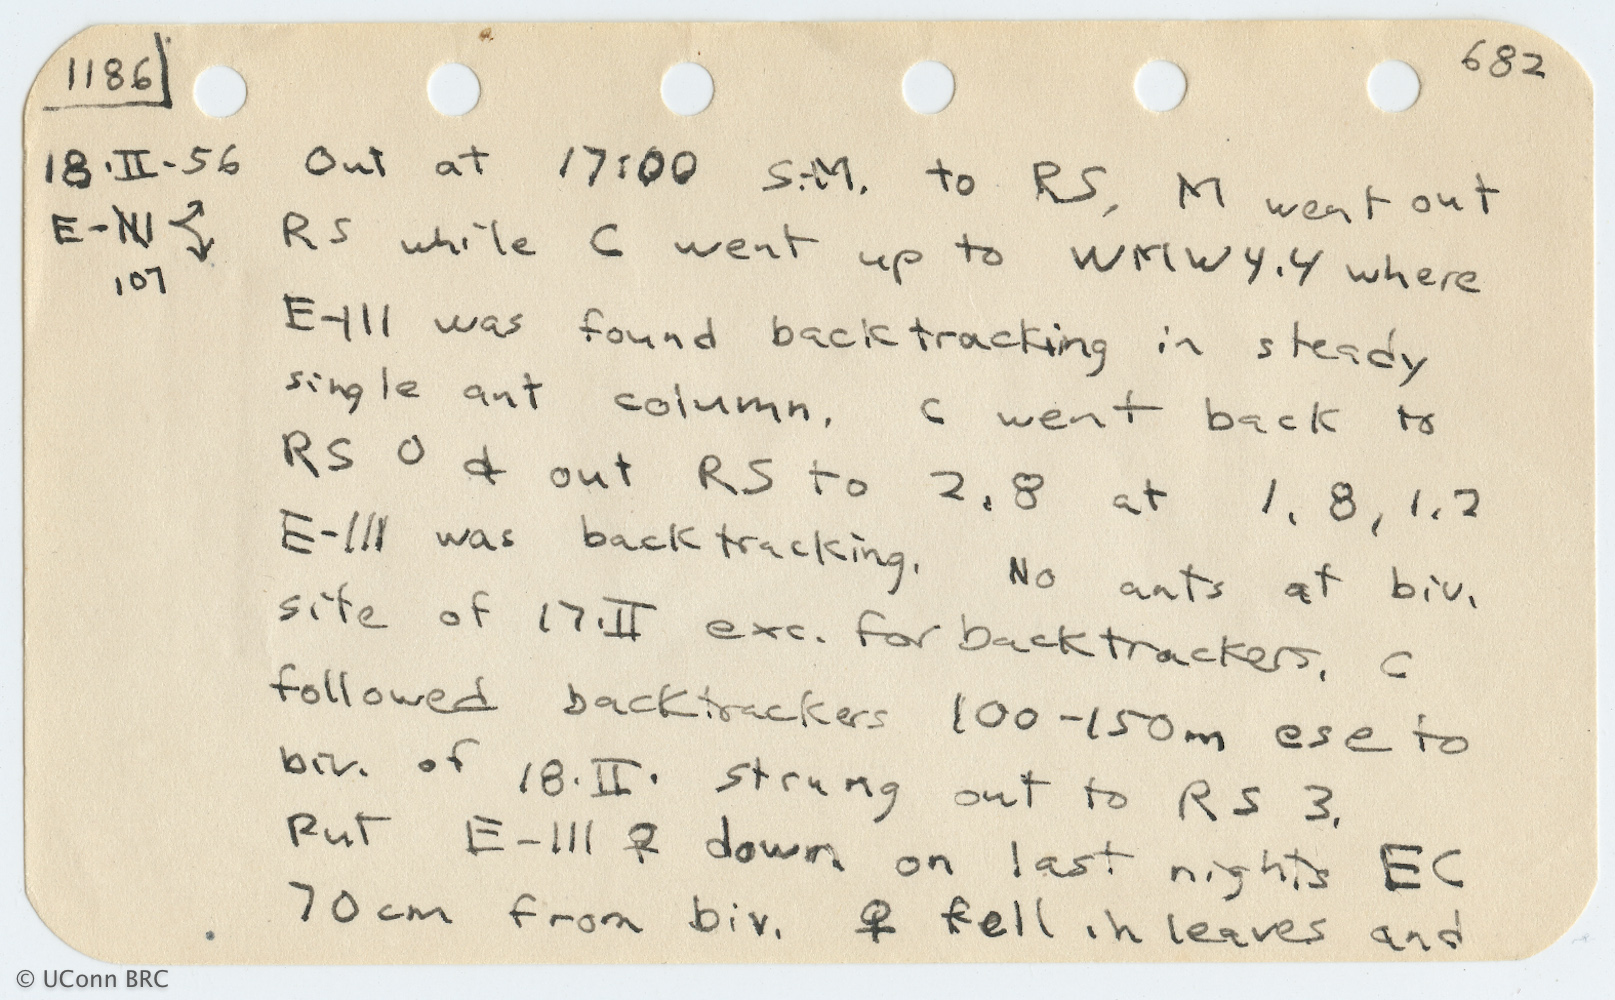 1186
682
18.II-56 Out at 17:00 S.M. to RS, M went out
E-III RS while C went up to WMW 4.4 where
107
E-III was found backtracking in steady
single ant column. C went back to
RS 0 & out RS to 2.8 at 1.8, 1.2
E-III was backtracking. No ants at biv.
site of 17.II exc. for backtrackers. C
followed backtrackers 100-150m ese to
biv. of 18.II. strung out to RS 3.
Put E-III ♀ down on last nights EC
70cm from biv. ♀ fell in leaves and
© UConn BRC